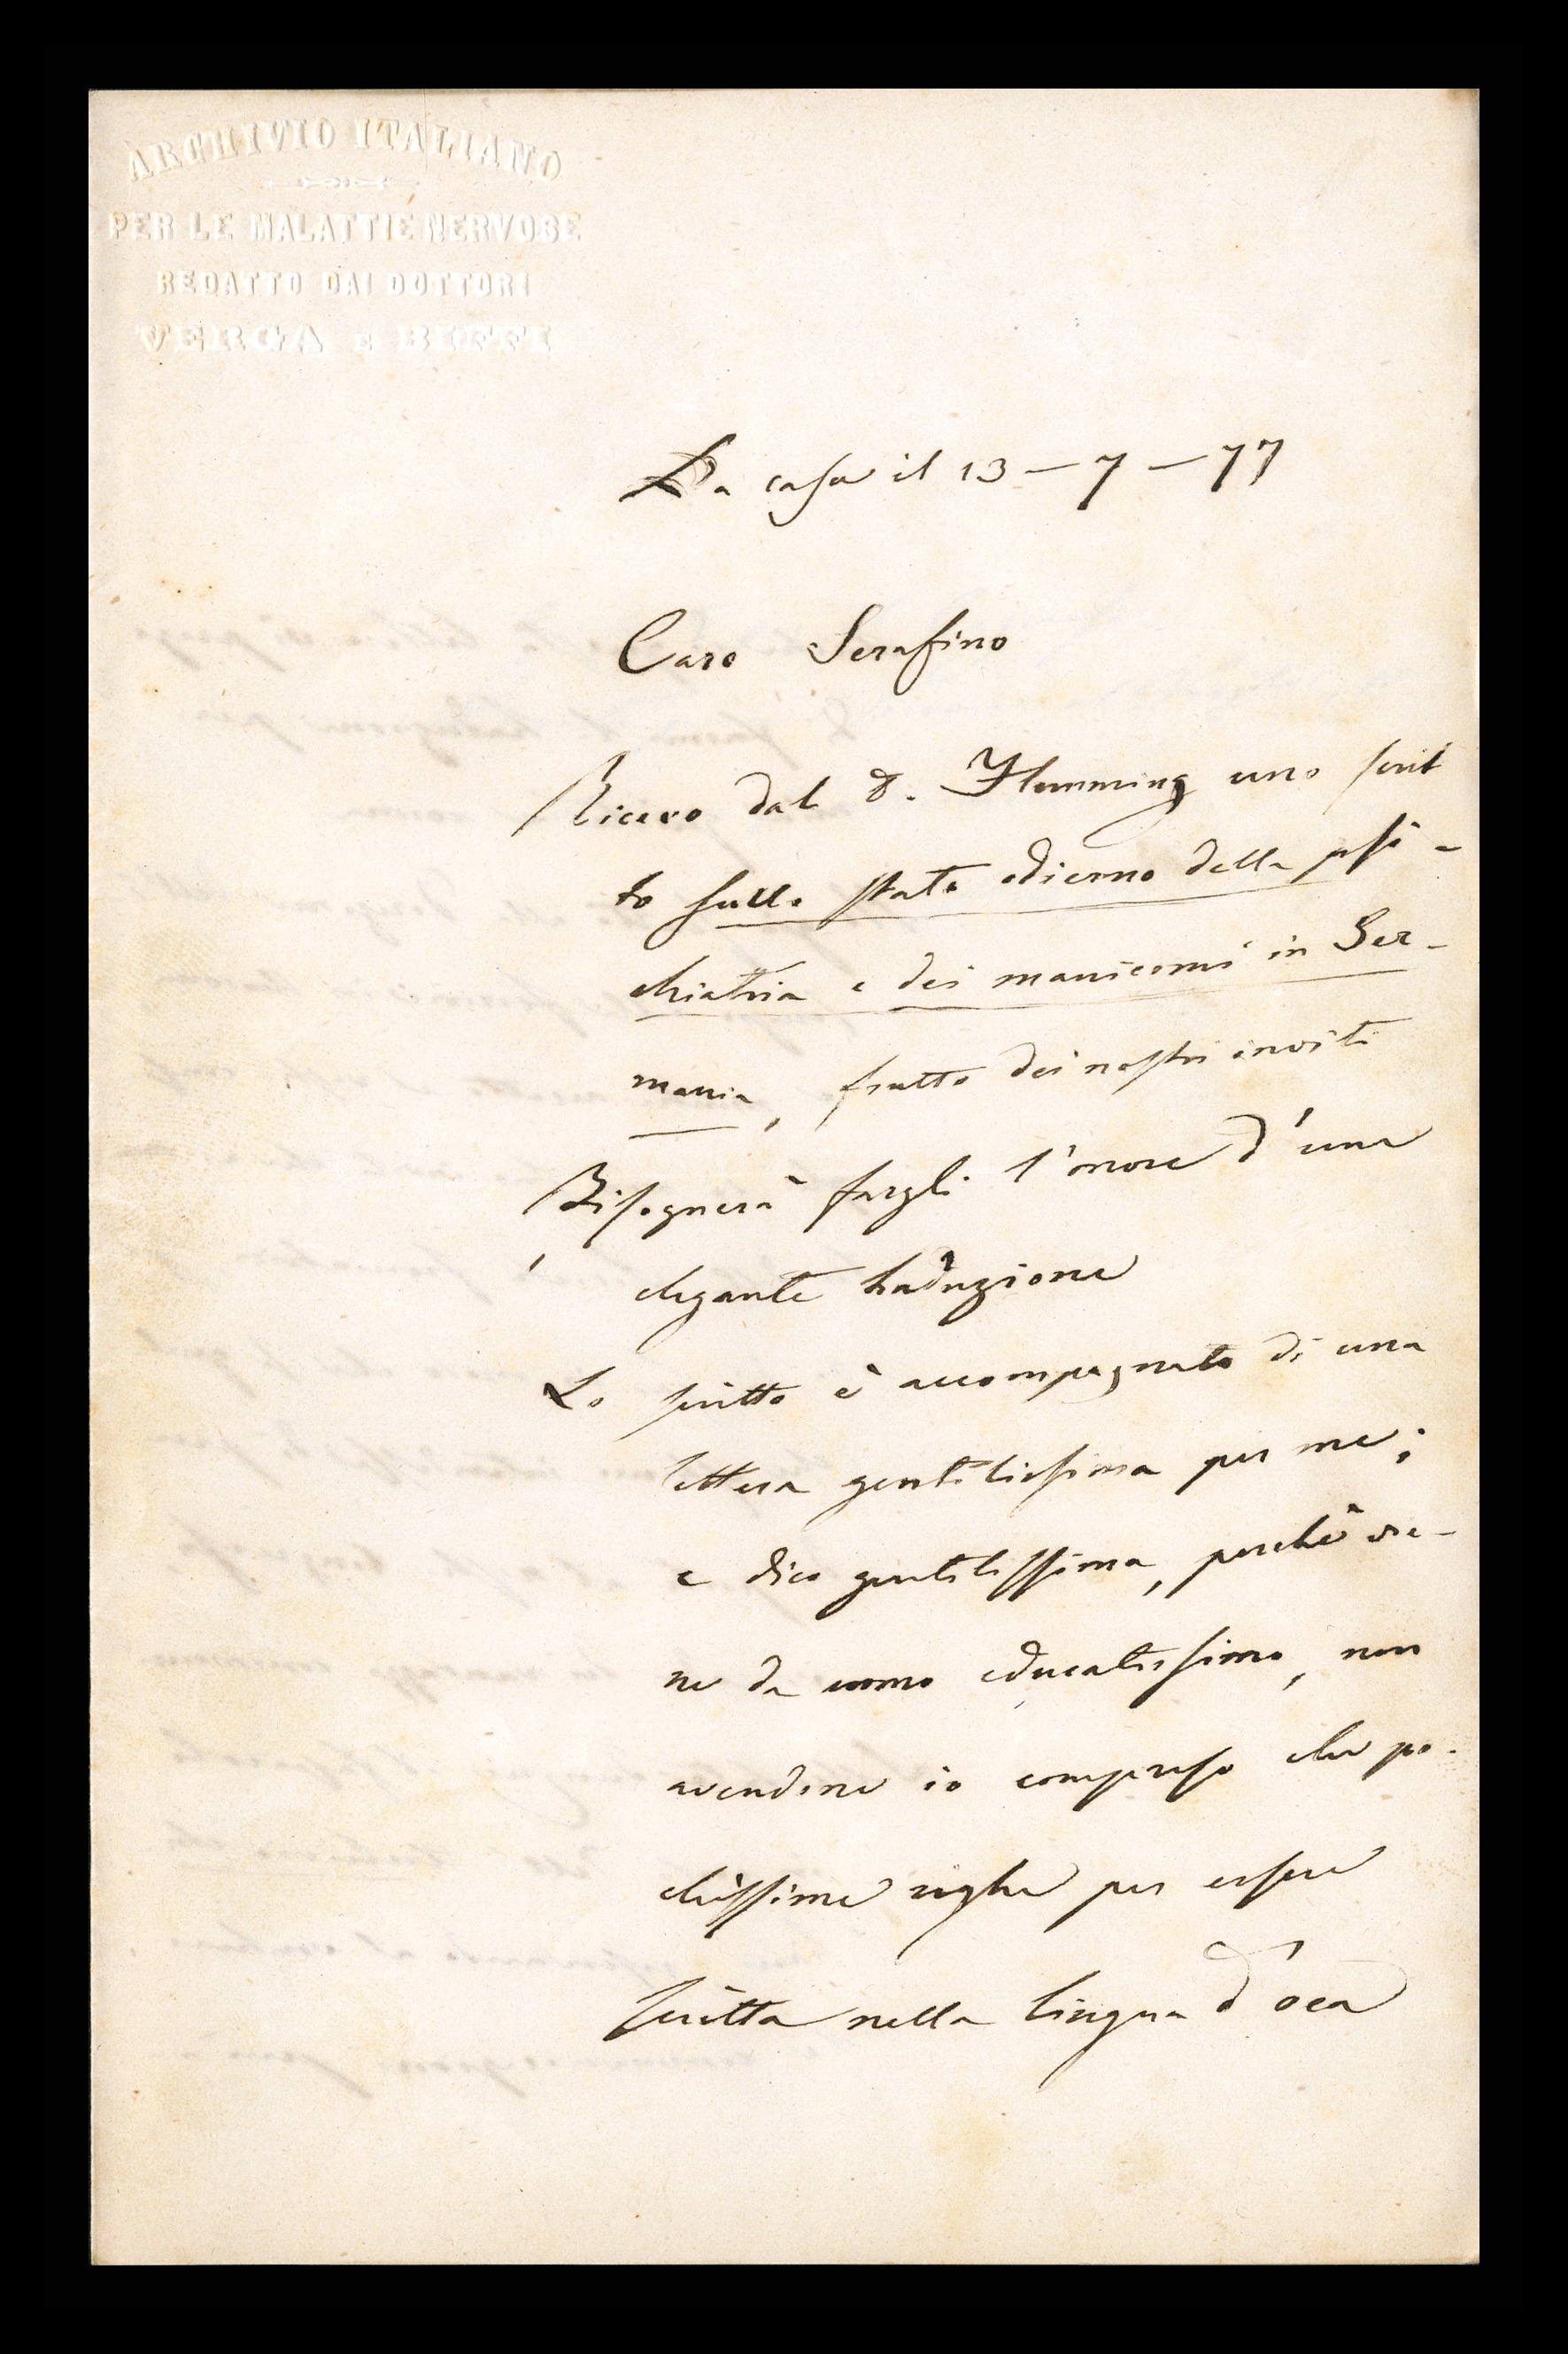 ARCHIVIO ITALIANO
PER LE MALATTIE NERVOSE
REDATTO DAI DOTTORI
VERGA E BIFFI
Da casa il 13 – 7 – 77
Caro Serafino
Ricevo dal d. Flemming uno scrit
to sullo stato odierno della psi-
chiatria e dei manicomi in Ger-
mania, frutto dei nostri inviti
Bisognerà fargli l'onore d'una
elegante traduzione
Lo scritto è accompagnato di una
lettera gentilissima per me;
e dico gentilissima, perchè vie-
ne da uomo educatissimo, non
avendone io compreso che po-
chissime righe per essere
scritta nella lingua d'oca